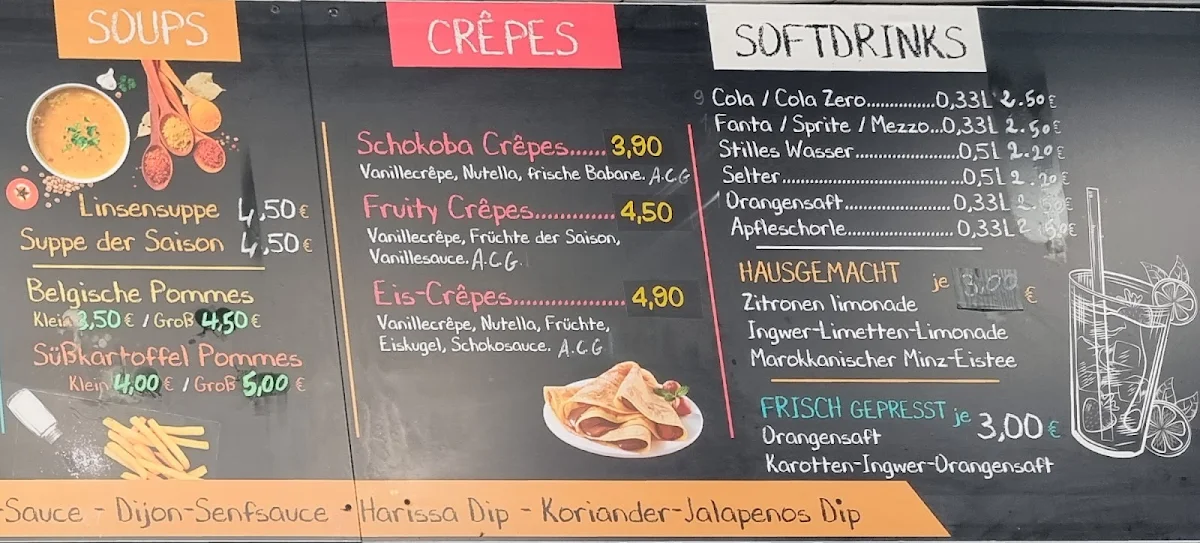 SOUPS
Linsensuppe 4,50€
Suppe der Saison 4,50€
Belgische Pommes
Klein 3,50 € / Groß 4,50 €
Süßkartoffel Pommes
Klein 4,00 € / Groß 5,00 €
CRÊPES
Schokoba Crêpes...... 3,90
Vanillecrêpe, Nutella, frische Babane. A.C.G
Fruity Crêpes............. 4,50
Vanillecrêpe, Früchte der Saison,
Vanillesauce. A.C.G.
Eis-Crêpes.................. 4,90
Vanillecrêpe, Nutella, Früchte,
Eiskugel, Schokosauce. A.C.G
SOFTDRINKS
9 Cola / Cola Zero..............0,33L 2.50€
Fanta / Sprite / Mezzo...0,33L 2.50€
Stilles Wasser.....................0,5L 2.20€
Selter....................................0,5L 2.20€
Orangensaft......................0,33L 2.50€
Apfleschorle......................0,33L 2.50€
HAUSGEMACHT je 3,00 €
Zitronen limonade
Ingwer-Limetten-Limonade
Marokkanischer Minz-Eistee
FRISCH GEPRESST je 3,00 €
Orangensaft
Karotten-Ingwer-Orangensaft
-Sauce - Dijon-Senfsauce - Harissa Dip - Koriander-Jalapenos Dip